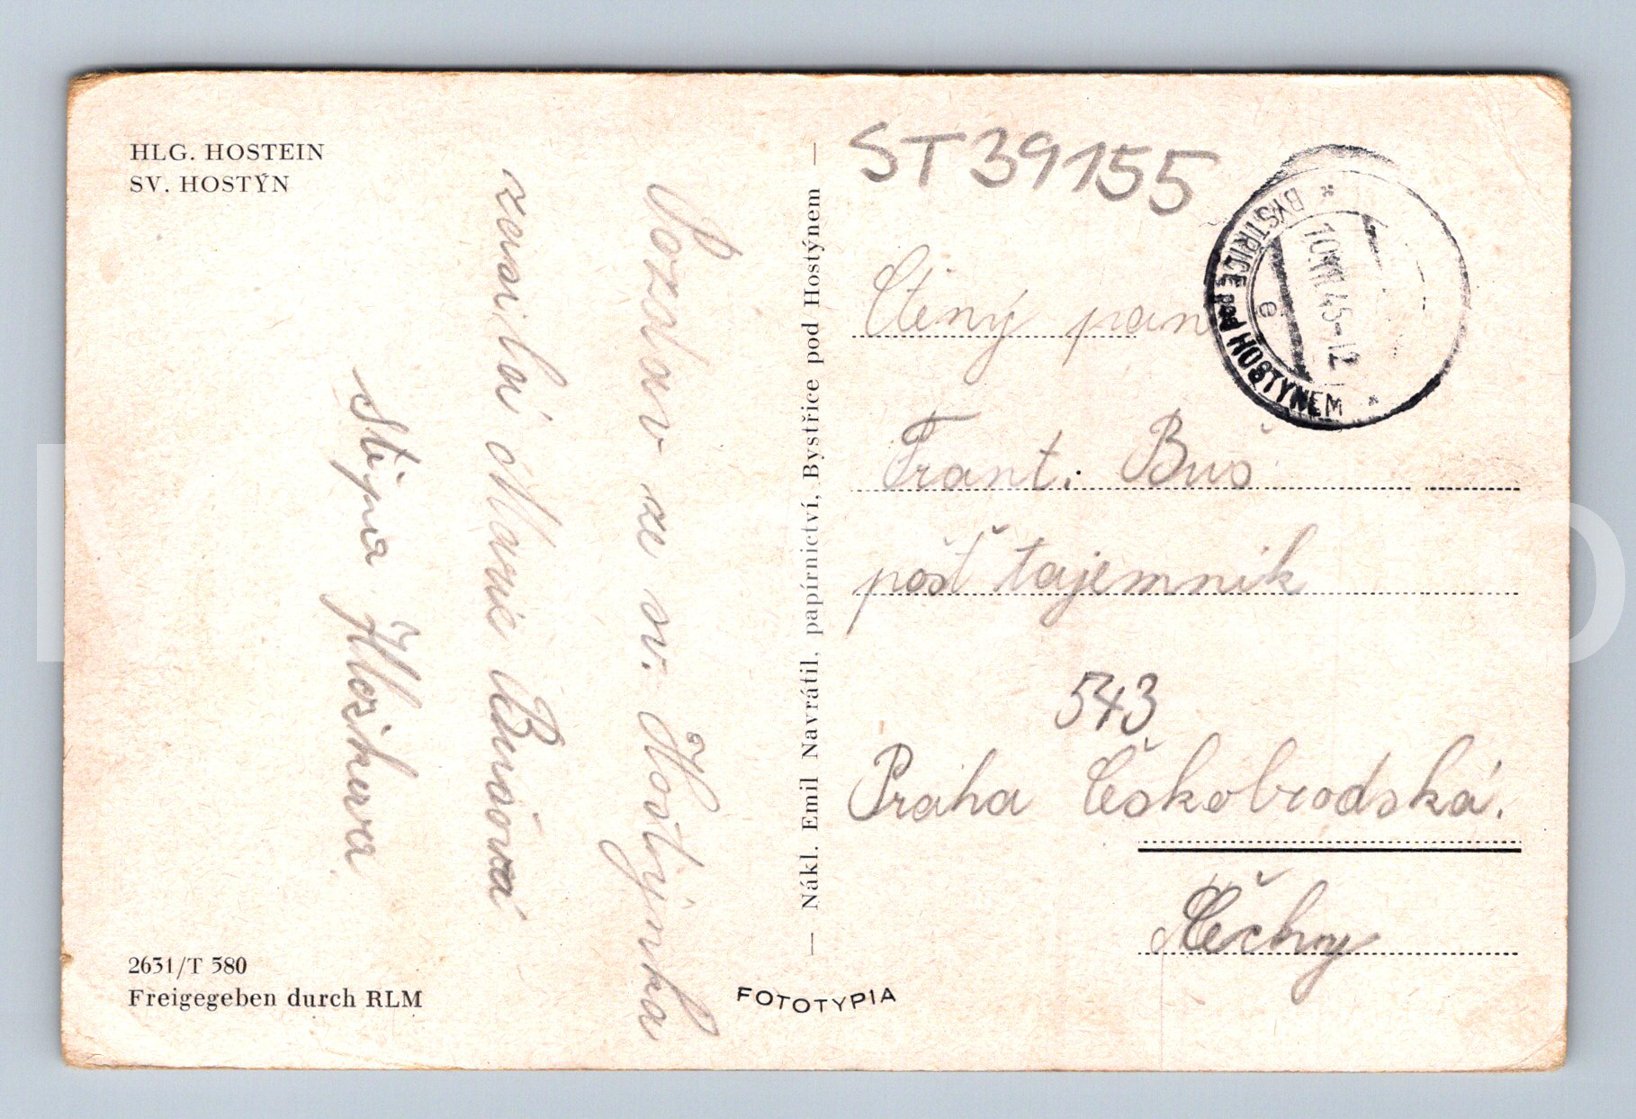 HLG. HOSTEIN
SV. HOSTÝN
Pozdrav ze sv. Hostýnka
zasílá Marie Bušová
Štípa
2631/T 380
Freigegeben durch RLM
— Nákl. Emil Navrátil, papírnictví, Bystřice pod Hostýnem —
FOTOTYPIA
ST39155
BYSTŘICE pod HOSTÝNEM
e
Ctěný pan
Frant. Buš
pošt tajemník
543
Praha Českobrodská.
Čechy